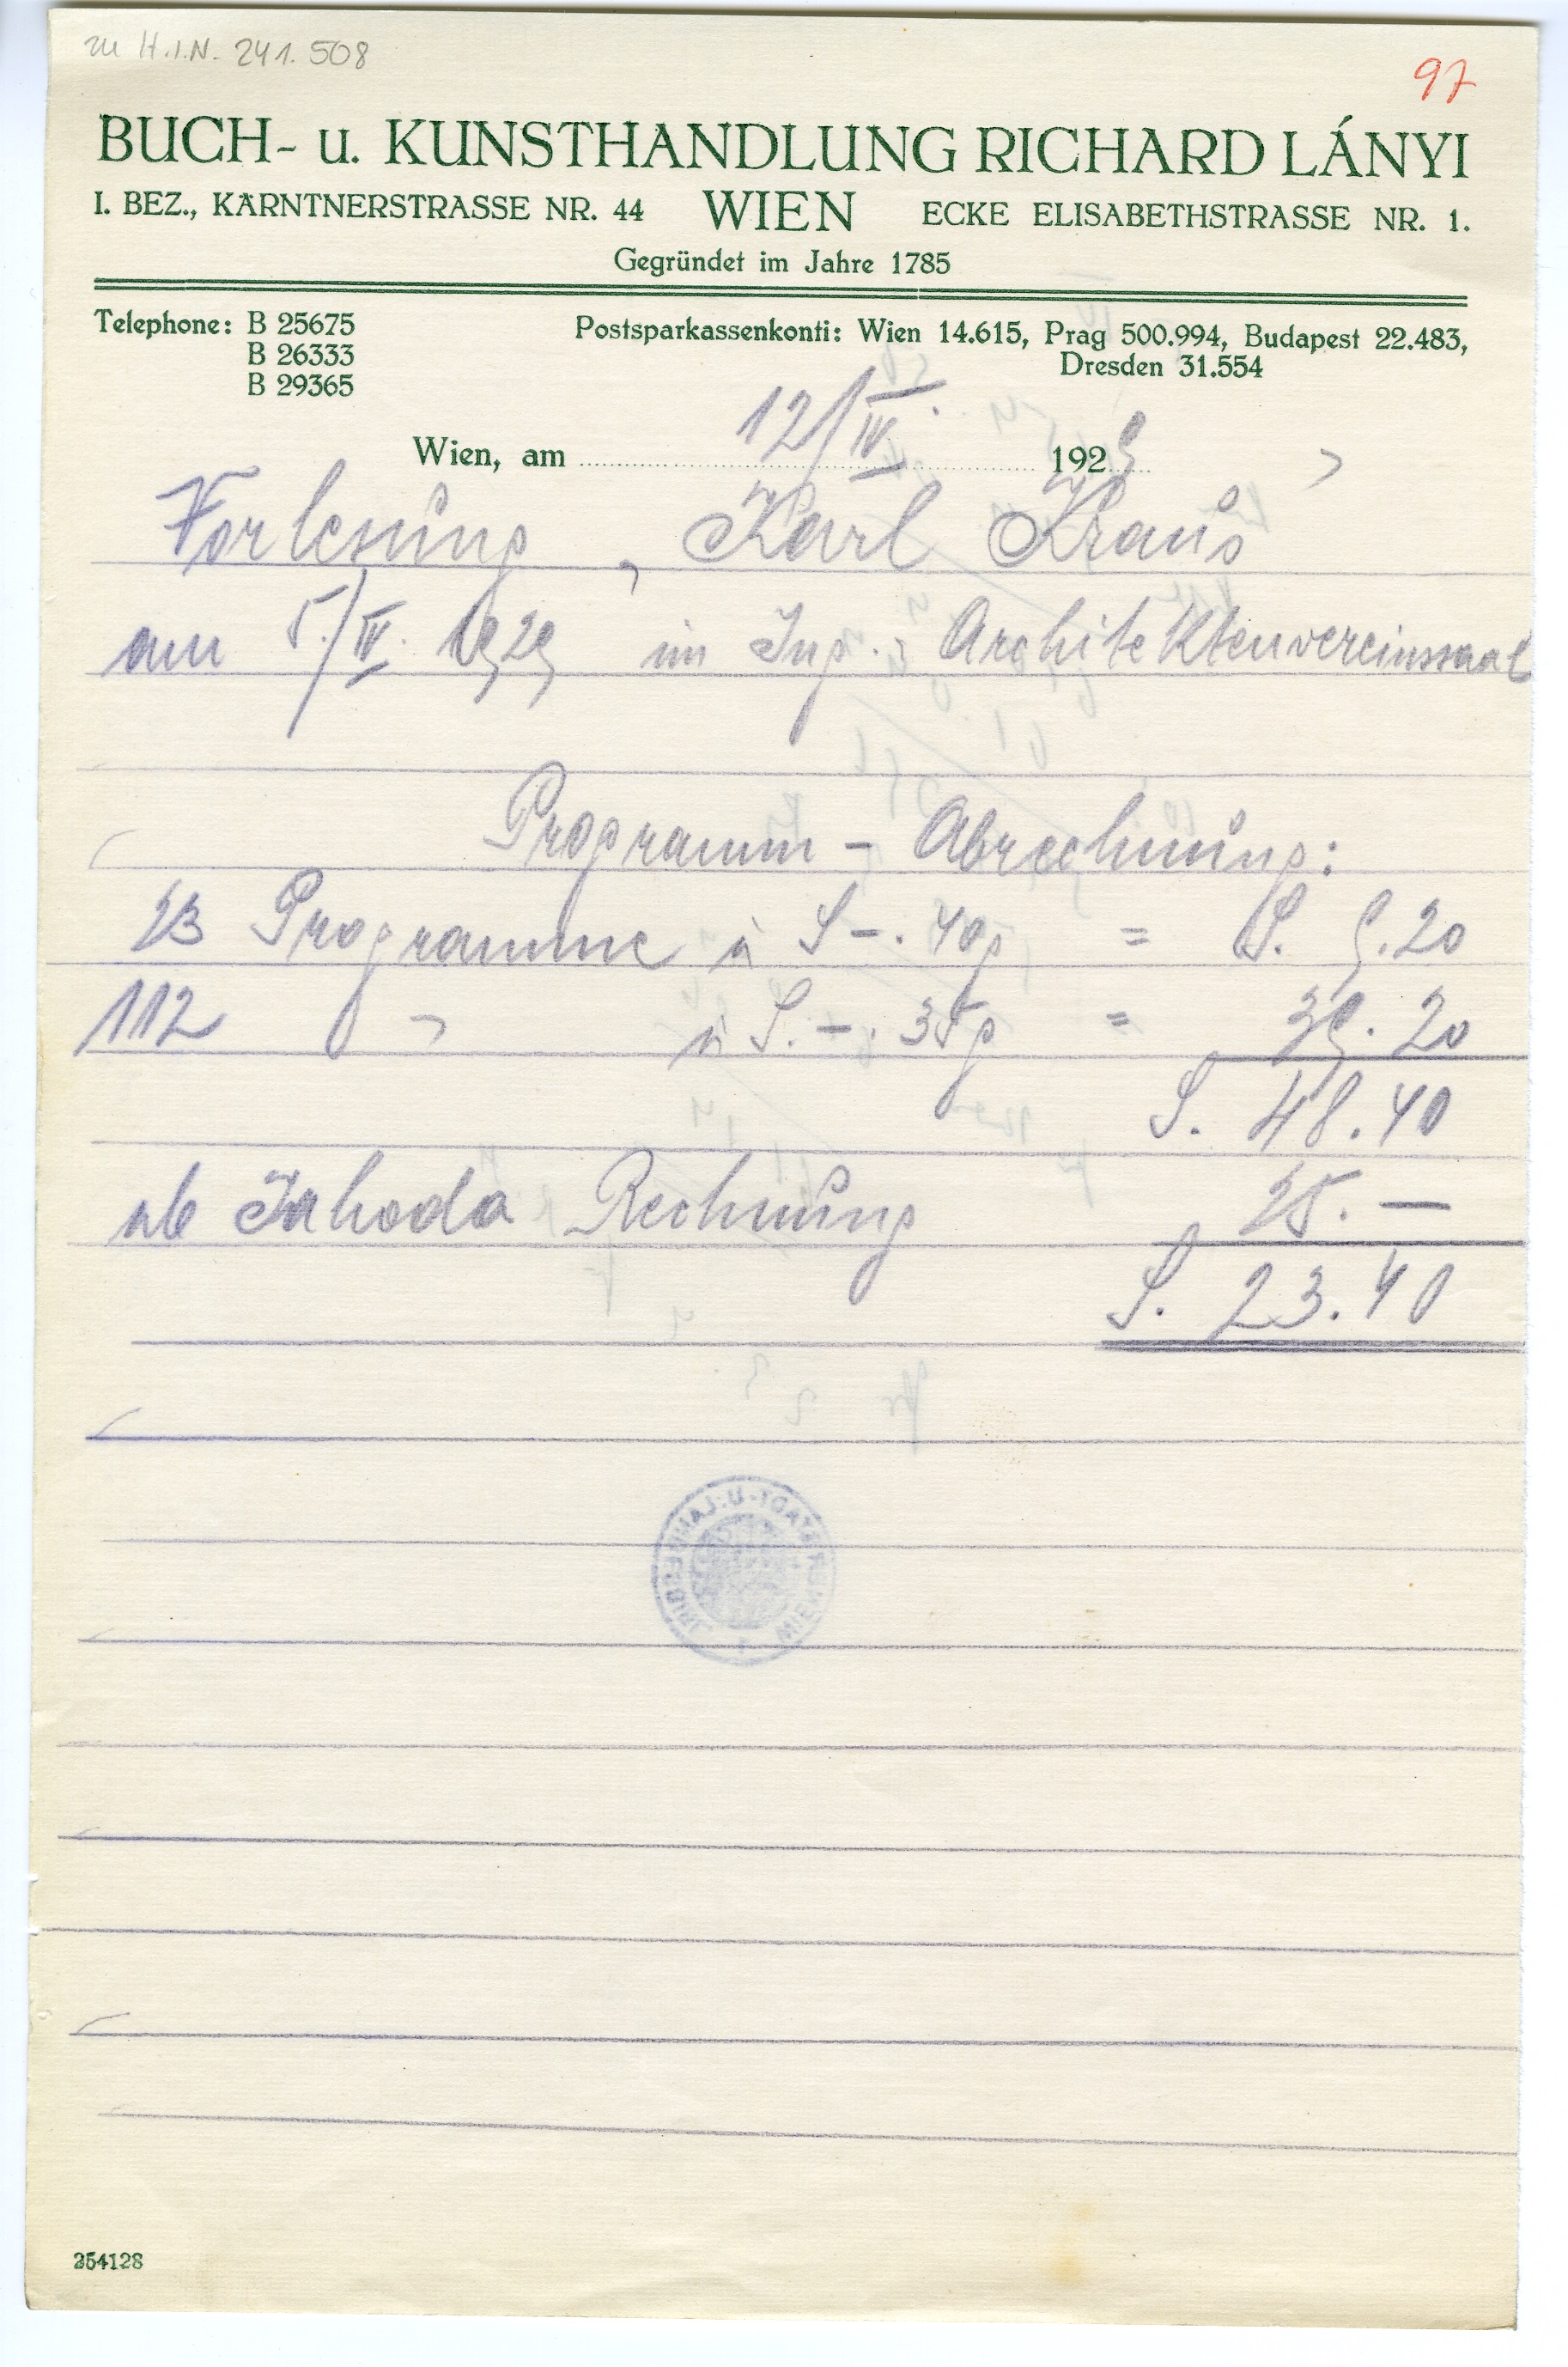 zu H.I.N. 241.508
97
BUCH- u. KUNSTHANDLUNG RICHARD LÁNYI
I. BEZ., KÄRNTNERSTRASSE NR. 44 WIEN ECKE ELISABETHSTRASSE NR. 1.
Gegründet im Jahre 1785
Telephone: B 25675
B 26333
B 29365
Postsparkassenkonti: Wien 14.615, Prag 500.994, Budapest 22.483,
Dresden 31.554
Wien, am 12/IV. 1929
Vorlesung „Karl Kraus"
am 5./IV. 1929 im Ing. - Architektenvereinssaal
Programm - Abrechnung:
23 Programme à S -. 40g = S. 9.20
112 " à S. -. 35g = 39.20
S. 48.40
ab Jahoda Rechnung 25. —
S. 23.40
254128